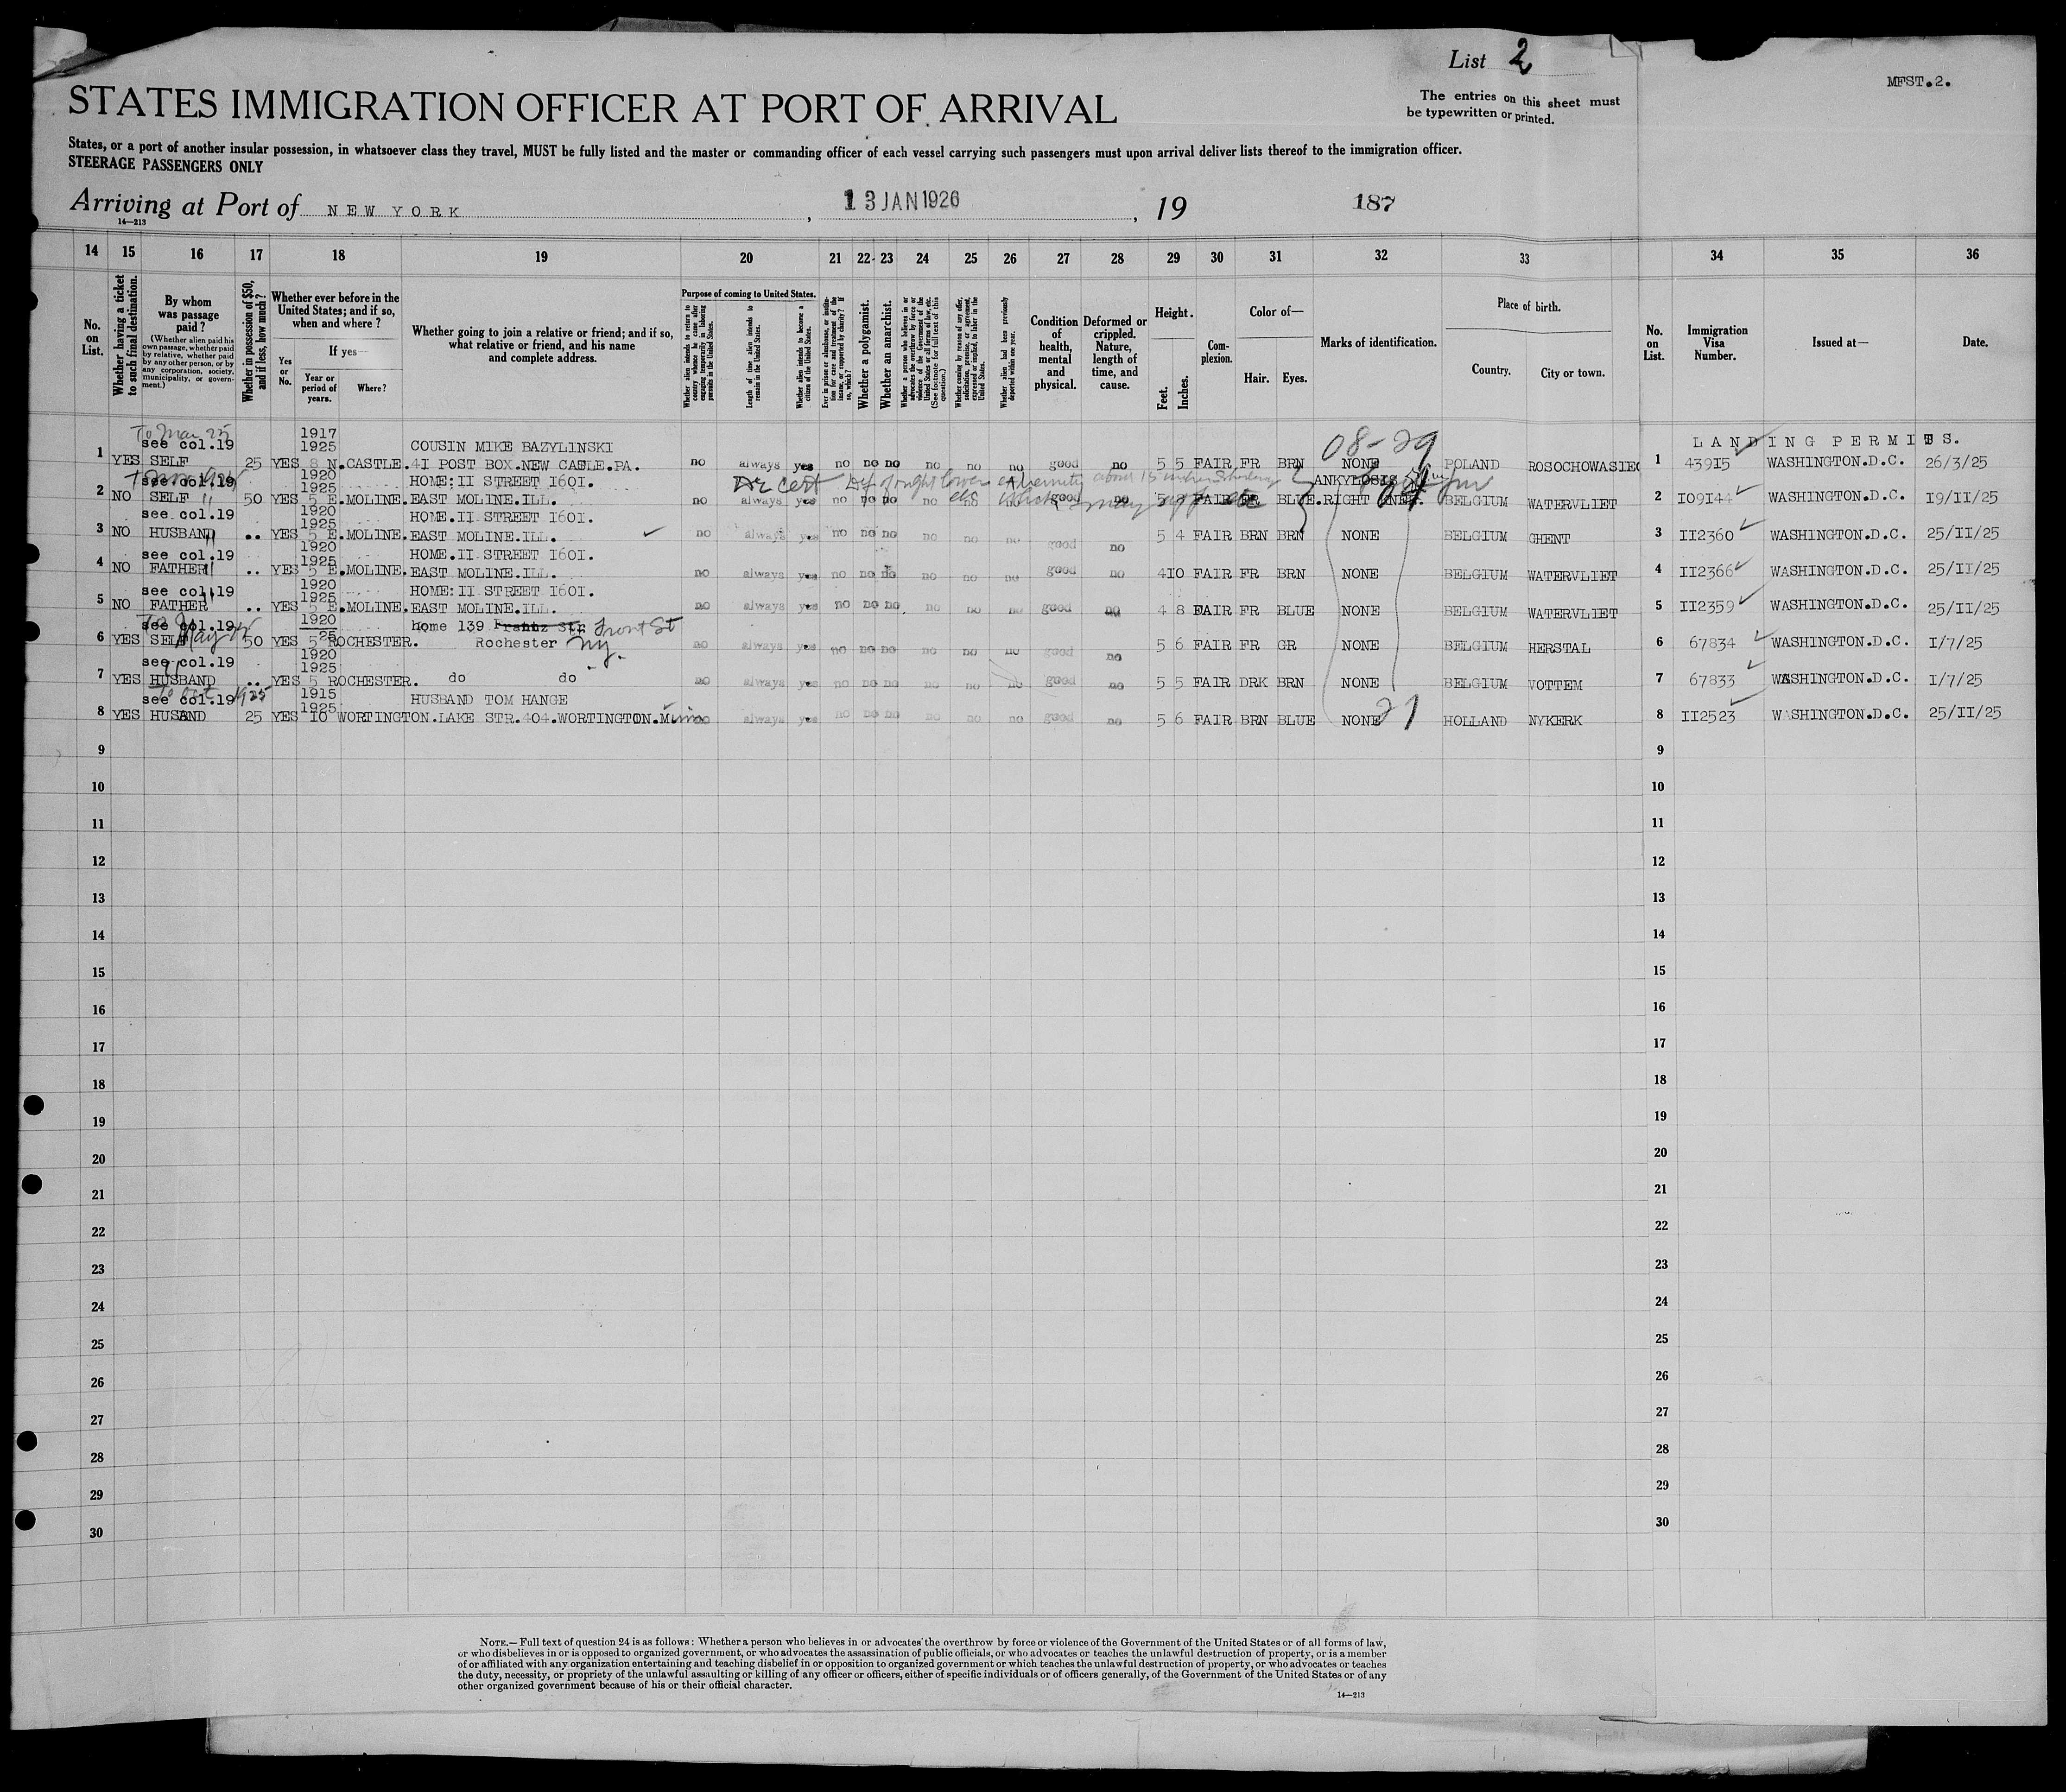 List 2
MFST.2.
The entries on this sheet must
be typewritten or printed.
STATES IMMIGRATION OFFICER AT PORT OF ARRIVAL
States, or a port of another insular possession, in whatsoever class they travel, MUST be fully listed and the master or commanding officer of each vessel carrying such passengers must upon arrival deliver lists thereof to the immigration officer.
STEERAGE PASSENGERS ONLY
Arriving at Port of NEW YORK, 13 JAN 1926, 19 187
14—213
14 15 16 17 18 19 20 21 22 23 24 25 26 27 28 29 30 31 32 33 34 35 36
No. on List.
Whether having a ticket to such final destination.
By whom was passage paid?
(Whether alien paid his own passage, whether paid by relative, whether paid by any other person, or by any corporation, society, municipality, or government.)
Whether in possession of $50, and if less, how much?
Whether ever before in the United States; and if so, when and where?
Yes or No.
If yes—
Year or period of years.
Where?
Whether going to join a relative or friend; and if so, what relative or friend, and his name and complete address.
Purpose of coming to United States.
Whether alien intends to return to country whence he came after engaging temporarily in laboring pursuits in the United States.
Length of time alien intends to remain in the United States.
Whether alien intends to become a citizen of the United States.
Whether a polygamist.
Whether an anarchist.
Whether alien had been previously deported within one year.
Condition of health, mental and physical.
Deformed or crippled. Nature, length of time, and cause.
Height.
Feet.
Inches.
Complexion.
Color of—
Hair.
Eyes.
Marks of identification.
Place of birth.
Country.
City or town.
No. on List.
Immigration Visa Number.
Issued at—
Date.
To Mar 25 1917 08-29 LANDING PERMITS.
see col.19 1925 COUSIN MIKE BAZYLINSKI
1 YES SELF 25 YES 8 N.CASTLE. 41 POST BOX.NEW CASLE.PA. no always yes no no no no no no good no 5 5 FAIR FR BRN NONE POLAND ROSOCHOWASIEC 1 43915 WASHINGTON.D.C. 26/3/25
see col.19 1920 1925 HOME:II STREET I60I. Dr Cert right lower extremity about ANKYLOSIS
2 NO SELF 50 YES 5 E.MOLINE. EAST MOLINE.ILL. no always yes no no no no no no good no 5 FAIR BLUE RIGHT KNEE. BELGIUM WATERVLIET 2 I09144 WASHINGTON.D.C. I9/II/25
see col.19 1920 1925 HOME.II STREET I60I.
3 NO HUSBAND .. YES 5 E.MOLINE. EAST MOLINE.ILL. no always yes no no no no no no good no 5 4 FAIR BRN BRN NONE BELGIUM GHENT 3 II2360 WASHINGTON.D.C. 25/II/25
see col.19 1920 1925 HOME.II STREET I60I.
4 NO FATHER .. YES 5 E.MOLINE. EAST MOLINE.ILL. no always yes no no no no no no good no 4 IO FAIR FR BRN NONE BELGIUM WATERVLIET 4 II2366 WASHINGTON.D.C. 25/II/25
see col.19 1920 1925 HOME:II STREET I60I.
5 NO FATHER .. YES 5 E.MOLINE. EAST MOLINE.ILL. no always yes no no no no no no good no 4 8 FAIR FR BLUE NONE BELGIUM WATERVLIET 5 II2359 WASHINGTON.D.C. 25/II/25
see col.19 1920 25 home 139 Frantz Str Front St
6 YES SELF 50 YES 5 ROCHESTER. Rochester N.Y. no always yes no no no no no no good no 5 6 FAIR FR GR NONE BELGIUM HERSTAL 6 67834 WASHINGTON.D.C. I/7/25
see col.19 1920 1925
7 YES HUSBAND .. YES 5 ROCHESTER. do do no always yes no no no no no no good no 5 5 FAIR DRK BRN NONE BELGIUM VOTTEM 7 67833 WASHINGTON.D.C. I/7/25
To Oct 1925 see col.19 1915 1925 HUSBAND TOM HANGE
8 YES HUSAND 25 YES IO WORTINGTON. LAKE STR.404.WORTINGTON.Minn no always yes no no no no no no good no 5 6 FAIR BRN BLUE NONE 21 HOLLAND NYKERK 8 II2523 WASHINGTON.D.C. 25/II/25
9 9
10 10
11 11
12 12
13 13
14 14
15 15
16 16
17 17
18 18
19 19
20 20
21 21
22 22
23 23
24 24
25 25
26 26
27 27
28 28
29 29
30 30
NOTE.—Full text of question 24 is as follows: Whether a person who believes in or advocates the overthrow by force or violence of the Government of the United States or of all forms of law,
or who disbelieves in or is opposed to organized government, or who advocates the assassination of public officials, or who advocates or teaches the unlawful destruction of property, or is a member
of or affiliated with any organization entertaining and teaching disbelief in or opposition to organized government or which teaches the unlawful destruction of property, or who advocates or teaches
the duty, necessity, or propriety of the unlawful assaulting or killing of any officer or officers, either of specific individuals or of officers generally, of the Government of the United States or of any
other organized government because of his or their official character.
14—213